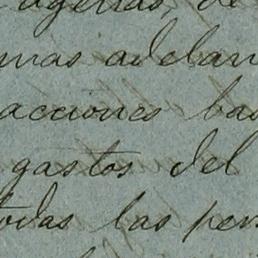 agenas, de
mas adelan
acciones bas
gastos del
todas las pers